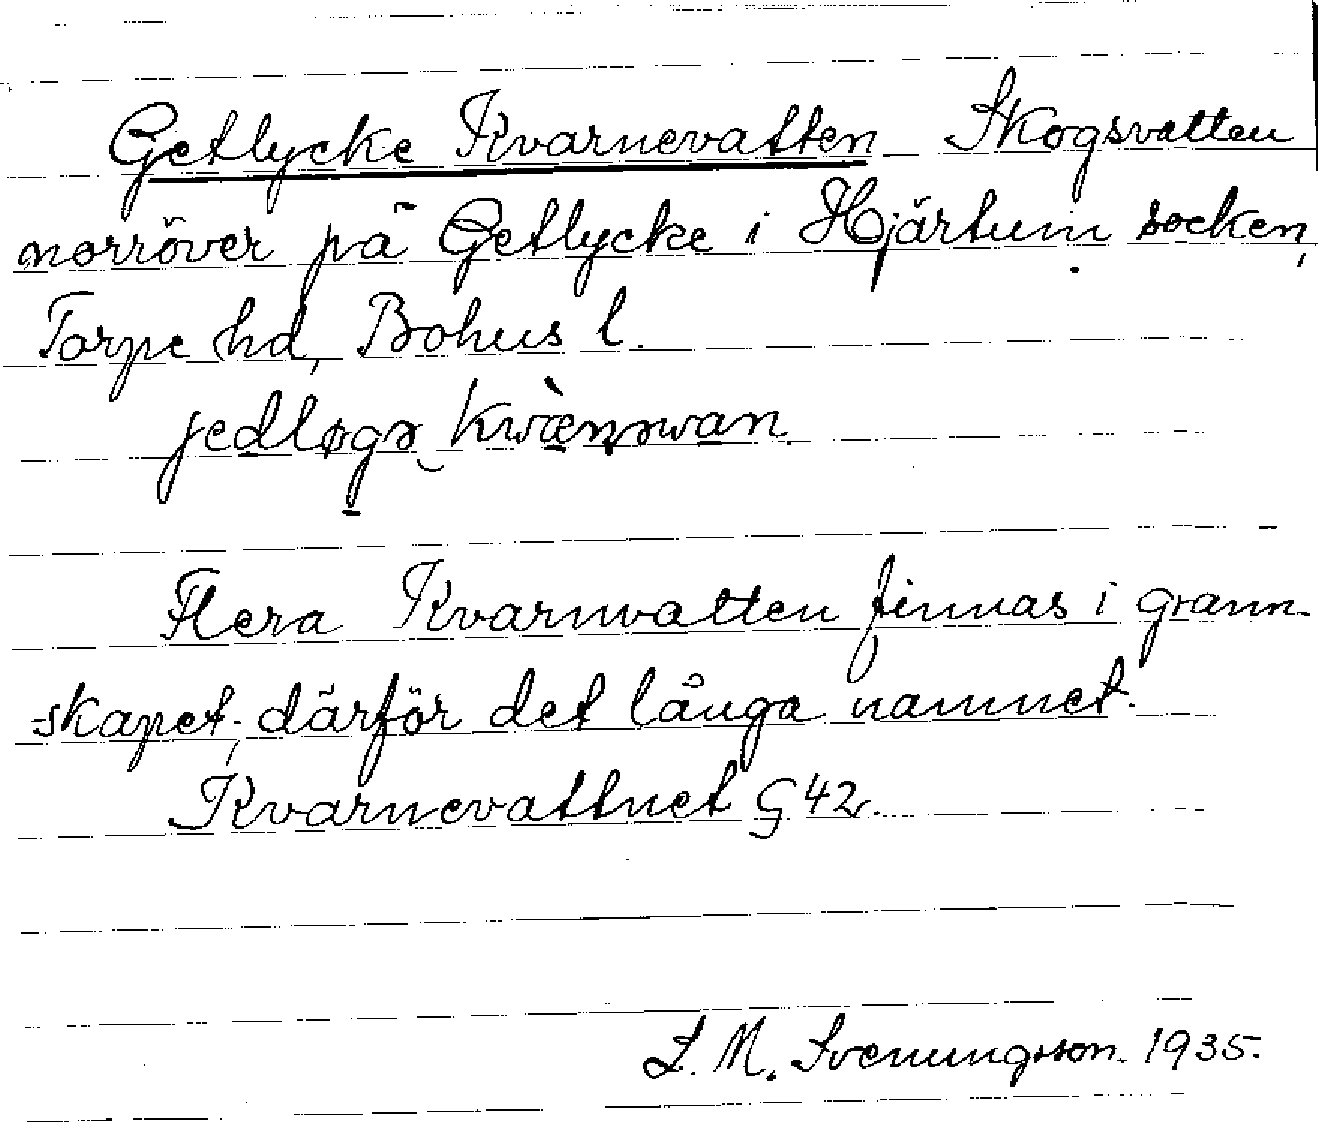 Getlycke Kvarnevatten Skogsvatten
norröver på Getlycke i Hjärtum socken,
Torpe hd, Bohus l.
jedløgə kwæ̀nnwan.
Flera Kvarnvatten finnas i grann-
skapet; därför det långa namnet.
Kvarnevattnet G 42.
S. M. Svenungsson. 1935.